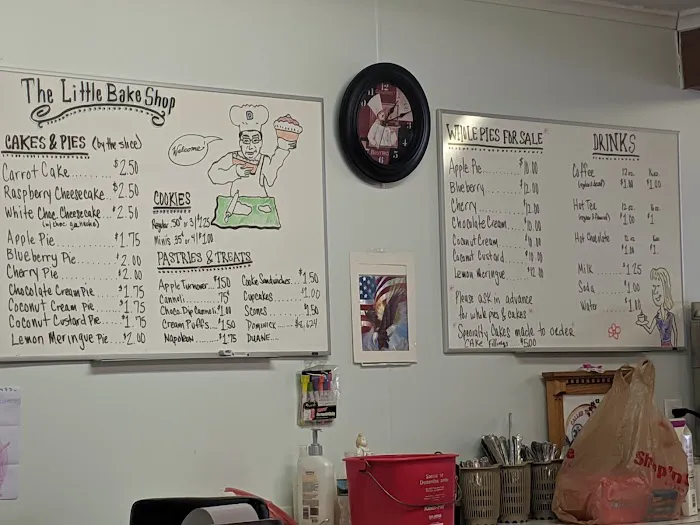 The Little Bake Shop
CAKES & PIES (by the slice)
Carrot Cake........ $2.50
Raspberry Cheesecake.. $2.50
White Choc. Cheesecake.. $2.50
Apple Pie........... $1.75
Blueberry Pie....... $2.00
Cherry Pie.......... $2.00
Chocolate Cream Pie... $1.75
Coconut Cream Pie.... $1.75
Coconut Custard Pie... $1.75
Lemon Meringue Pie... $2.00
Welcome!
COOKIES
Regular .50¢ or 3/$1.25
Minis 35¢ or 4/$1.00
PASTRIES & TREATS
Apple Turnover.. $1.50
Cannoli...... .75¢
Choco. Dip Cannoli. $1.00
Cream Puffs... $1.50
Napoleon..... $1.75
Cookie Sandwiches.. $1.50
Cupcakes.... $1.00
Scones...... $1.50
Dominick...
DUANE...
WHOLE PIES FOR SALE
Apple Pie....... $10.00
Blueberry....... $12.00
Cherry.......... $12.00
Chocolate Cream... $10.00
Coconut Cream..... $10.00
Coconut Custard... $10.00
Lemon Meringue.... $12.00
Please ask in advance
for whole pies & cakes
*Specialty Cakes made to order
CAKE Fillings $5.00
DRINKS
Coffee
$1.00 $1.00
Hot Tea
$1.00 $1
Hot Chocolate
Milk...... $1.25
Soda..... $1.00
Water.... $1.00
Stop'n